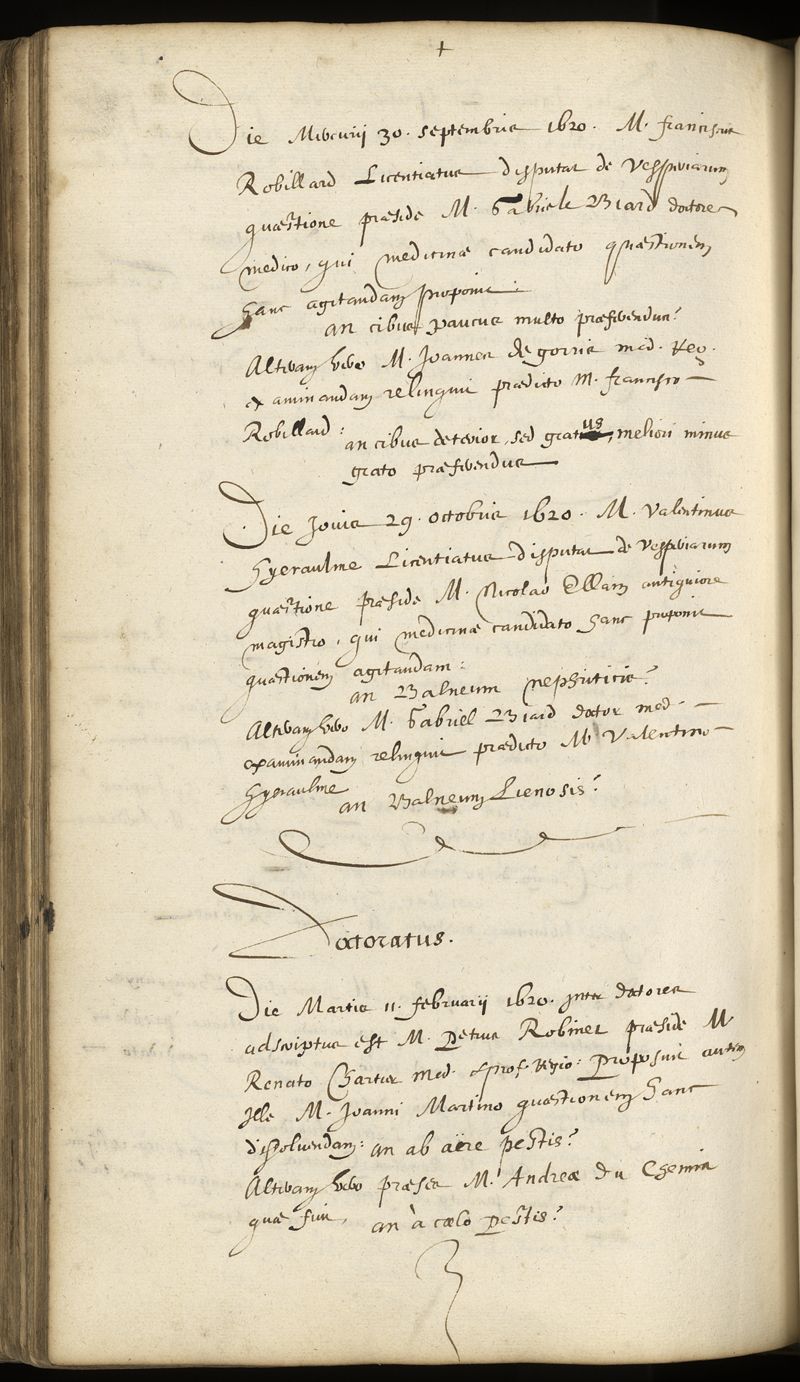 +
Die Mercurij 30. septembris 1620. M. franciscus
Robillard Licentiatus disputat de Vesperiarum
quæstione præside M. Gabriele Biard doctore
medico, qui medicinæ candidato quæstionem
hanc agitandam proponit:
an cibus paucus multo præferendus?
Alteram vero M. Joannes de gorris med. Reg.
examinandam relinquit prædicto M. francisco
Robillard: an cibus deterior, sed gratus, meliori minus
grato præferendus
Die Jovis 29. octobris 1620. M. Valentinus
hyeraulme Licentiatus disputat de Vesperiarum
quæstione præside M. Nicolao Ellain antiquiore
magistro, qui medicinæ candidato hanc proponit
quæstionem agitandam:
an Balneum nephriticis?
Alteram vero M. Gabriel Biard doctor med.
examinandam relinquit prædicto M. Valentino
hyeraulme
an Balneum Lienosis?
Doctoratus.
Die Martis 11. februarij 1620. inter doctores
adscriptus est M. Petrus Robinet præside M.
Renato Chartier med. & prof. Regio: Proposuit autem
ille M. Joanni Martino quæstionem hanc
dissolvendam: an ab aëre pestis?
Alteram vero præses M. Andreæ du Chemin
quæ fuit, an à cælo Pestis?